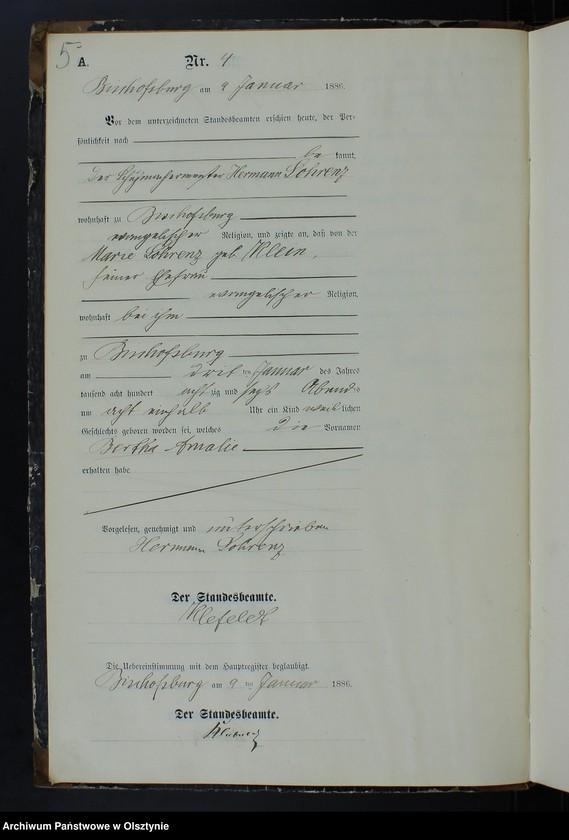 5
A.
Nr. 4
Bischofsburg am 9 Januar 1886.
Vor dem unterzeichneten Standesbeamten erschien heute, der Per-
sönlichkeit nach
be kannt,
der Schuhmachermeister Hermann Lohrenz
wohnhaft zu Bischofsburg
evangelischer Religion, und zeigte an, daß von der
Marie Lohrenz geb. Klein,
seiner Ehefrau
evangelischer Religion,
wohnhaft bei ihm
zu Bischofsburg
am drit ten Januar des Jahres
tausend acht hundert acht zig und sechs Abends
um acht einhalb Uhr ein Kind weib lichen
Geschlechts geboren worden sei, welches die Vornamen
Bertha Amalie
erhalten habe
Vorgelesen, genehmigt und unterschrieben
Hermann Lohrenz
Der Standesbeamte.
Klefeldt
Die Uebereinstimmung mit dem Hauptregister beglaubigt.
Bischofsburg am 9 ten Januar 1886.
Der Standesbeamte.
Archiwum Państwowe w Olsztynie